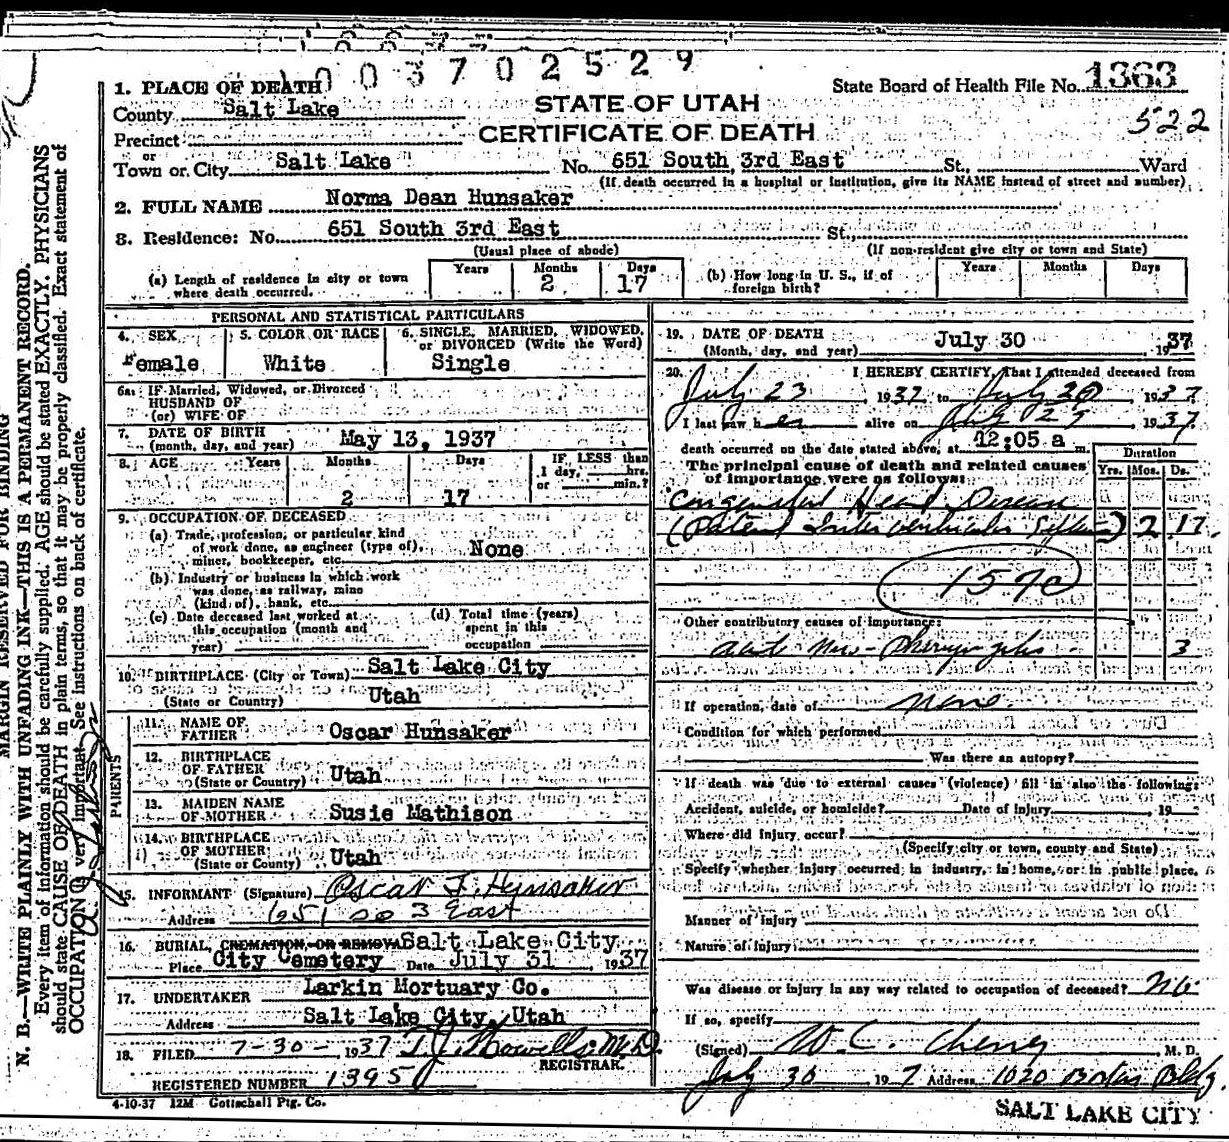 1 0 0 3 7 0 2 5 2 9
1. PLACE OF DEATH
State Board of Health File No. 1363
County Salt Lake
STATE OF UTAH
522
Precinct
CERTIFICATE OF DEATH
or
Town or City Salt Lake No. 651 South 3rd East St., Ward
(If death occurred in a hospital or institution, give its NAME instead of street and number)
2. FULL NAME Norma Dean Hunsaker
3. Residence: No. 651 South 3rd East St.,
(Usual place of abode) (If non-resident give city or town and State)
(a) Length of residence in city or town where death occurred. Years Months 2 Days 17
(b) How long in U. S., if of foreign birth? Years Months Days
PERSONAL AND STATISTICAL PARTICULARS
4. SEX Female
5. COLOR OR RACE White
6. SINGLE, MARRIED, WIDOWED, or DIVORCED (Write the Word) Single
6a. IF Married, Widowed, or Divorced
HUSBAND OF
(or) WIFE OF
7. DATE OF BIRTH
(month, day, and year) May 13, 1937
8. AGE Years Months 2 Days 17
IF LESS than
1 day, hrs.
or min.?
9. OCCUPATION OF DECEASED
(a) Trade, profession, or particular kind
of work done, as engineer (type of), None
miner, bookkeeper, etc.
(b) Industry or business in which work
was done, as railway, mine
(kind of), bank, etc.
(c) Date deceased last worked at this occupation (month and year)
(d) Total time (years) spent in this occupation
10. BIRTHPLACE (City or Town) Salt Lake City
(State or Country) Utah
PARENTS
11. NAME OF
FATHER Oscar Hunsaker
12. BIRTHPLACE
OF FATHER
(State or Country) Utah
13. MAIDEN NAME
OF MOTHER Susie Mathison
14. BIRTHPLACE
OF MOTHER
(State or County) Utah
15. INFORMANT (Signature) Oscar F. Hunsaker
Address 651 So 3 East
16. BURIAL, CREMATION, OR REMOVAL Salt Lake City
Place City Cemetery Date July 31, 1937
17. UNDERTAKER Larkin Mortuary Co.
Address Salt Lake City, Utah
18. FILED 7-30-1937 T.J. Howells M.D.
REGISTRAR.
REGISTERED NUMBER 1395
4-10-37 12M Gottschall Ptg. Co.
19. DATE OF DEATH
(Month, day, and year) July 30 1937
20. I HEREBY CERTIFY, That I attended deceased from
July 23, 1937, to July 30, 1937
I last saw her alive on July 29, 1937
death occurred on the date stated above, at 12:05 a m.
The principal cause of death and related causes
of importance were as follows:
Duration
Yrs. Mos. Ds.
Congenital Heart Disease
(Patent Interventricular Septum) 2 17
157c
Other contributory causes of importance:
acute 3
If operation, date of None
Condition for which performed
Was there an autopsy?
If death was due to external causes (violence) fill in also the following:
Accident, suicide, or homicide? Date of injury, 19
Where did injury occur?
(Specify city or town, county and State)
Specify whether injury occurred in industry, in home, or in public place,
Manner of injury
Nature of injury
Was disease or injury in any way related to occupation of deceased? No
If so, specify
(Signed) W. C. Cheney M. D.
July 30 197 Address 1020 Bldg.
SALT LAKE CITY
MARGIN RESERVED FOR BINDING
N. B.—WRITE PLAINLY WITH UNFADING INK—THIS IS A PERMANENT RECORD.
Every item of information should be carefully supplied. AGE should be stated EXACTLY. PHYSICIANS
should state CAUSE OF DEATH in plain terms, so that it may be properly classified. Exact statement of
OCCUPATION very important. See instructions on back of certificate.